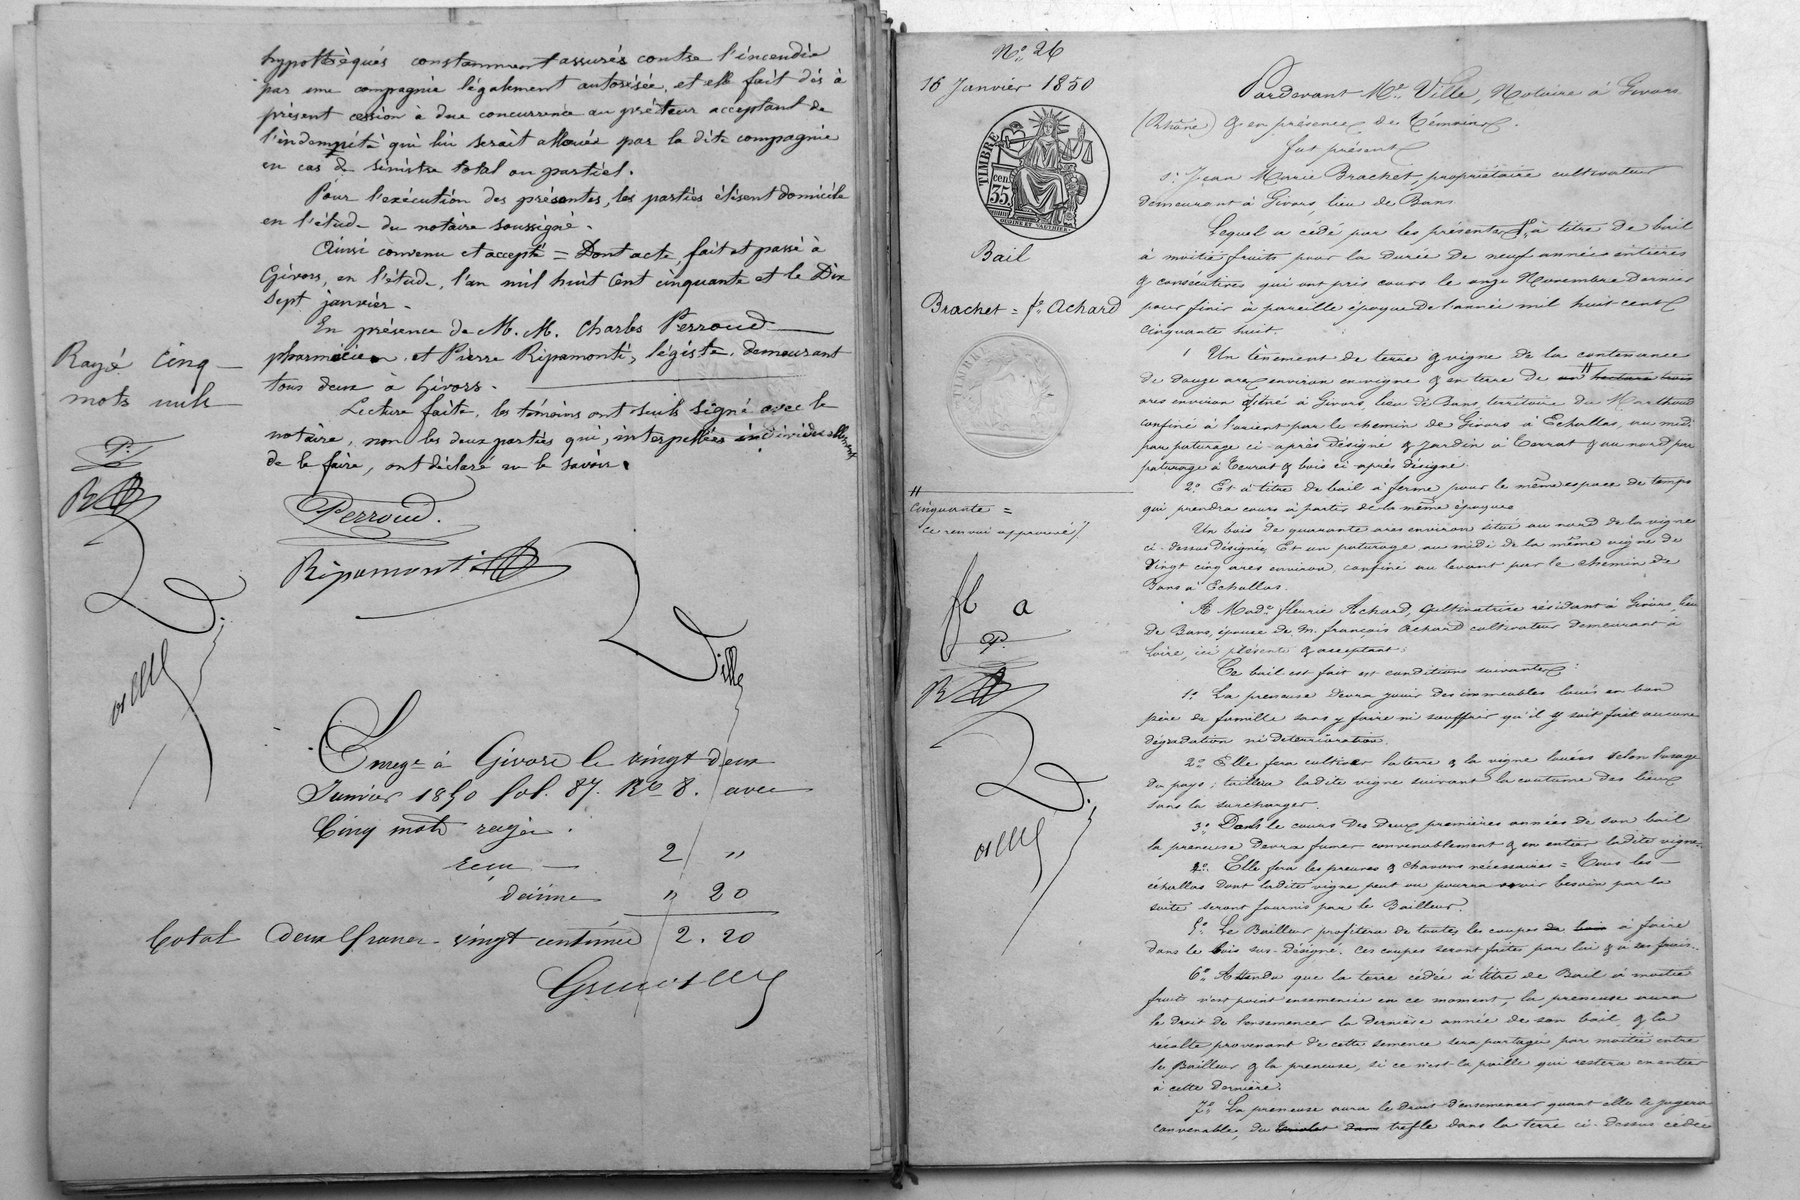 hypothèqués constamment assurés contre l'incendie
par une compagnie légalement autorisée, et elle fait dès à
présent cession à due concurrence au prêteur acceptant de
l'indemnité qui lui serait allouée par la dite compagnie
en cas de sinistre total ou partiel.
Pour l'exécution des présentes, les parties élisent domicile
en l'étude du notaire soussigné.
Ainsi convenu et accepté = Dont acte, fait et passé à
Givors, en l'étude, l'an mil huit cent cinquante et le Dix
sept janvier.
En présence de M. M. Charles Perroud
pharmacien, et Pierre Ripamonti, légiste, demeurant
tous deux à Givors.
Lecture faite, les témoins ont seuls signé avec le
notaire, non les deux parties qui, interpellées individuellement
de le faire, ont déclaré ne le savoir.
Rayé cinq
mots nuls
P.
R
Perroud.
Ripamonti
Ville
Enreg^e à Givors le vingt deux
Janvier 1850 fol. 87. R^o 8. avec
Cinq mots rayés.
Reçu 2 "
décime " 20
Total deux francs vingt centimes 2.20
N^o 26
16 Janvier 1850
TIMBRE
cen
35.
Bail
Brachet = f^e Achard
TIMBRE
cinquante =
ce renvoi approuvé /.
fl a
P.
R
Pardevant M^e Ville, Notaire à Givors
(Rhône) & en présence de témoins.
fut présent
S^r Jean Marie Brachet, propriétaire cultivateur
demeurant à Givors, lieu de Bans
Lequel a cédé par les présentes, à titre de bail
à moitié fruits pour la durée de neuf années entières
& consécutives qui ont pris cours le onze Novembre dernier
pour finir à pareille époque de l'année mil huit cent
cinquante huit.
1 Un tènement de terre & vigne de la contenance
de douze ares environ en vigne & en terre de un hectare trois
ares environ situé à Givors, lieu de Bans, territoire du
confiné à l'orient par le chemin de Givors à Echallas, au midi
par paturage ci-après désigné & jardin à & au nord par
paturage à & bois ci-après désigné.
2^o Et à titre de bail à ferme pour le même espace de temps
qui prendra cours à partir de la même époque
Un bois de quarante ares environ situé au nord de la vigne
ci-dessus désignée, Et un paturage au midi de la même vigne de
vingt cinq ares environ, confiné au levant par le chemin de
Bans à Echallas.
A Mad^e fleurie Achard, cultivatrice résidant à Givors, lieu
de Bans, épouse de M. françois Achard cultivateur demeurant à
Loire, ici présente & acceptant:
Ce bail est fait aux conditions suivantes:
1^o La preneuse devra jouir des immeubles loués en bon
père de famille sans y faire ni souffrir qu'il y soit fait aucune
dégradation ni détérioration.
2^o Elle fera cultiver la terre & la vigne louées selon l'usage
du pays; taillera ladite vigne suivant la coutume des lieux
sans la surcharger.
3^o Dans le cours des deux premières années de son bail
la preneuse devra fumer convenablement & en entier ladite vigne.
4^o Elle fera les preuves & chavons nécessaires = Tous les
échallas dont ladite vigne peut ou pourra avoir besoin par la
suite seront fournis par le Bailleur.
5^o Le Bailleur profitera de toutes les coupes de bois à faire
dans le bois sus-désigné. Ces coupes seront faites par lui & à ses frais.
6^o Attendu que la terre cédée à titre de Bail à moitié
fruits n'est point ensemencée en ce moment, la preneuse aura
le droit de l'ensemencer la dernière année de son bail, & la
récolte provenant de cette semence sera partagée par moitié entre
le Bailleur & la preneuse, si ce n'est la paille qui restera en entier
à cette dernière.
7^o La preneuse aura le droit d'ensemencer quant elle le jugera
convenable, du trefle dans la terre ci-dessus cédée